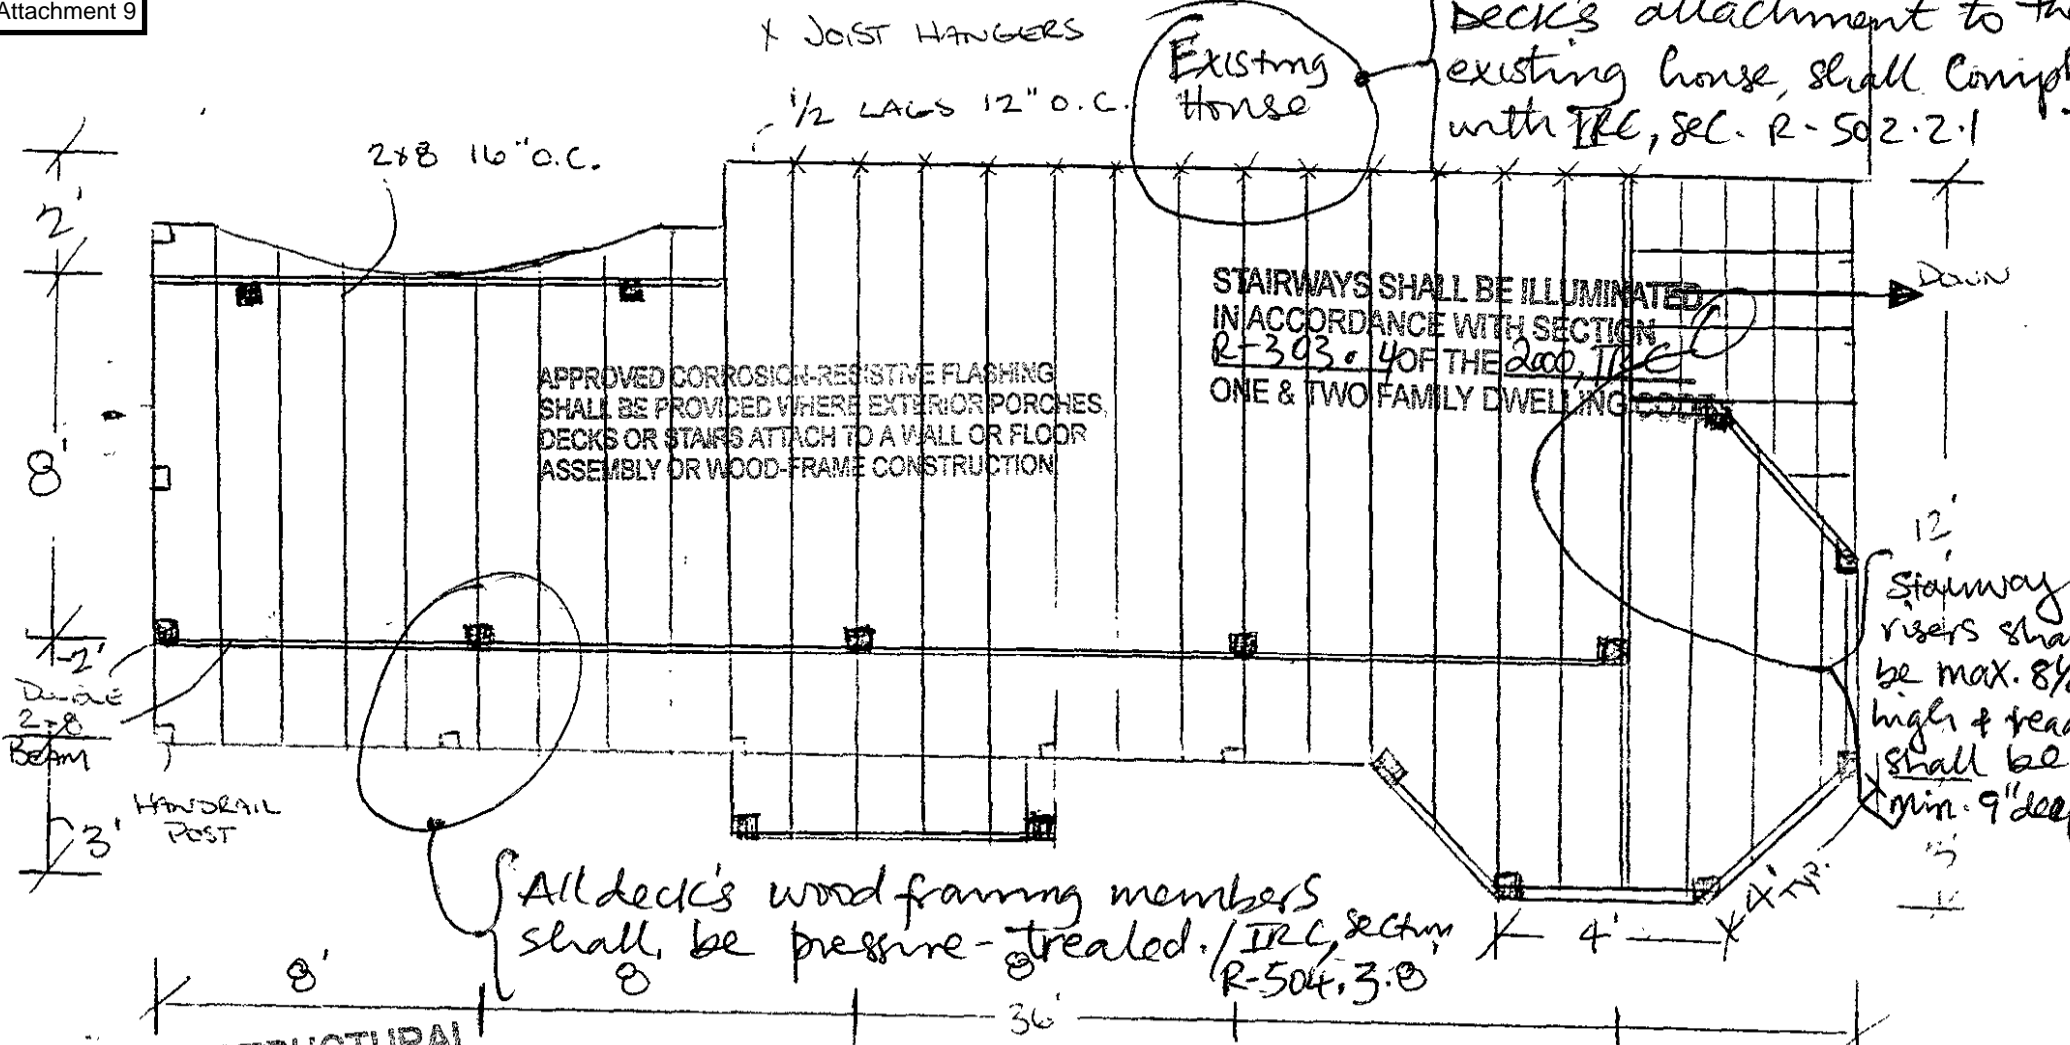 Attachment 9
X JOIST HANGERS
1/2 LAGS 12" O.C.
Existing
House
Deck's attachment to the
existing house, shall Comply
with IRC, sec. R-502.2.1
2x8 16" O.C.
2'
8'
2'
DOUBLE
2-8
BEAM
3'
HANDRAIL
POST
APPROVED CORROSION-RESISTIVE FLASHING
SHALL BE PROVIDED WHERE EXTERIOR PORCHES,
DECKS OR STAIRS ATTACH TO A WALL OR FLOOR
ASSEMBLY OR WOOD-FRAME CONSTRUCTION
STAIRWAYS SHALL BE ILLUMINATED
IN ACCORDANCE WITH SECTION
R-303.4 OF THE 2000, IRC
ONE & TWO FAMILY DWELLING CODE
DOWN
12'
Stairway
risers
be max.
high &
shall be
min. 9" deep
All deck's wood framing members
shall be pressure-treated. / IRC, section
R-504.3.
4'
4' TYP.
8'
8
8'
36'
STRUCTURAL